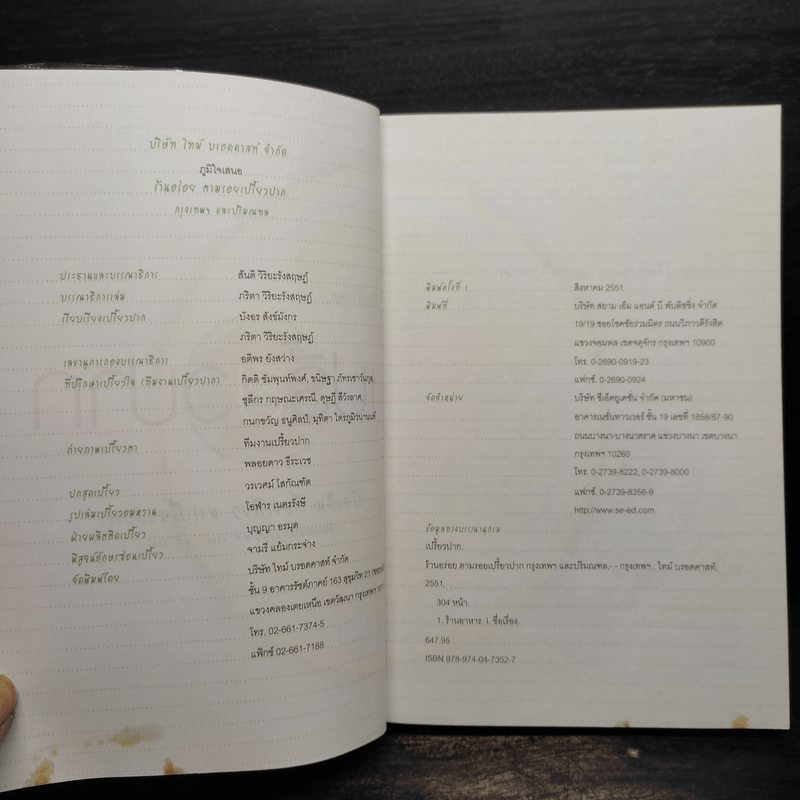 บริษัท ไทม์ บรอดคาสท์ จำกัด
ภูมิใจเสนอ
ร้านอร่อย ตามรอยเปรี้ยวปาก
กรุงเทพฯ และปริมณฑล
ประธานและบรรณาธิการ สันติ วิริยะรังสฤษฎ์
บรรณาธิการเล่ม ภริตา วิริยะรังสฤษฎ์
เรียบเรียงเปรี้ยวปาก บังอร สังข์มังกร
ภริตา วิริยะรังสฤษฎ์
เลขานุการกองบรรณาธิการ อติพร ยังสว่าง
ที่ปรึกษาเปรี้ยวใจ (ทีมงานเปรี้ยวปาก) กิตติ ชัมพุนท์พงศ์, ชนิษฐา ภัทรเชาว์นกุล,
ชุลีกร กฤษณะเศรณี, ดุษฎี สีวังลาศ,
กนกขวัญ ธนูศิลป์, มุทิตา ไตรภูมิวนานนท์
ถ่ายภาพเปรี้ยวตา ทีมงานเปรี้ยวปาก
พลอยดาว ธีระเวช
ปกสุดเปรี้ยว วรเวศม์ โสภัณฑ์ต
รูปเล่มเปรี้ยวอมหวาน โอฬาร เนตรรังษี
ฝ่ายผลิตติดเปรี้ยว บุญญา อรมุต
พิสูจน์อักษรซ่อนเปรี้ยว จามรี แย้มกระจ่าง
จัดพิมพ์โดย บริษัท ไทม์ บรอดคาสท์ จำกัด
ชั้น 9 อาคารรัชต์ภาคย์ 163 สุขุมวิท 21
แขวงคลองเตยเหนือ เขตวัฒนา กรุงเทพฯ
โทร. 02-661-7374-5
แฟ็กซ์ 02-661-7188
พิมพ์ครั้งที่ 1 สิงหาคม 2551
พิมพ์ที่ บริษัท สยาม เอ็ม แอนด์ บี พับลิชชิ่ง จำกัด
19/19 ซอยโชคชัยร่วมมิตร ถนนวิภาวดีรังสิต
แขวงจอมพล เขตจตุจักร กรุงเทพฯ 10900
โทร. 0-2690-0919-23
แฟกซ์. 0-2690-0924
จัดจำหน่าย บริษัท ซีเอ็ดยูเคชั่น จำกัด (มหาชน)
อาคารเนชั่นทาวเวอร์ ชั้น 19 เลขที่ 1858/87-90
ถนนบางนา-บางนาตราด แขวงบางนา เขตบางนา
กรุงเทพฯ 10260
โทร. 0-2739-8222, 0-2739-8000
แฟกซ์. 0-2739-8356-9
http://www.se-ed.com/
ข้อมูลทางบรรณานุกรม
เปรี้ยวปาก.
ร้านอร่อย ตามรอยเปรี้ยวปาก กรุงเทพฯ และปริมณฑล.- - กรุงเทพฯ : ไทม์ บรอดคาสท์,
2551.
304 หน้า.
1. ร้านอาหาร. I. ชื่อเรื่อง.
647.95
ISBN 978-974-04-7352-7